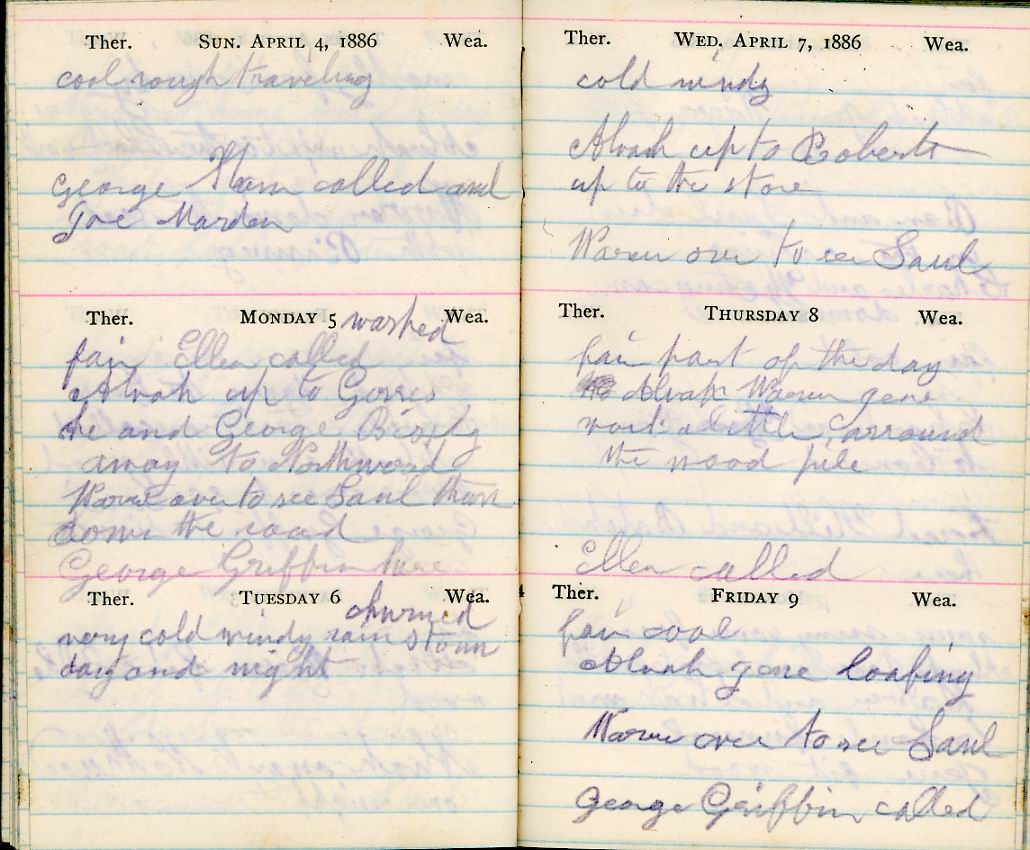 Ther. SUN. APRIL 4, 1886 Wea.
cool rough traveling
George Ham called and
Joe Marden
Ther. MONDAY 5 washed Wea.
fair Ellen called
Alvah up to
he and George
away to Northwood
Warren over to see Saul then
down the road
George Griffin here
Ther. TUESDAY 6 Wea.
churned
very cold windy rain storm
day and night
Ther. WED. APRIL 7, 1886 Wea.
cold windy
Alvah up to Roberts
up to the store
Warren over to see Saul
Ther. THURSDAY 8 Wea.
fair part of the day
Alvah Warren gone
work a little arround
the wood pile
Ellen called
Ther. FRIDAY 9 Wea.
fair cool
Alvah gone loafing
Warren over to see Saul
George Griffin called